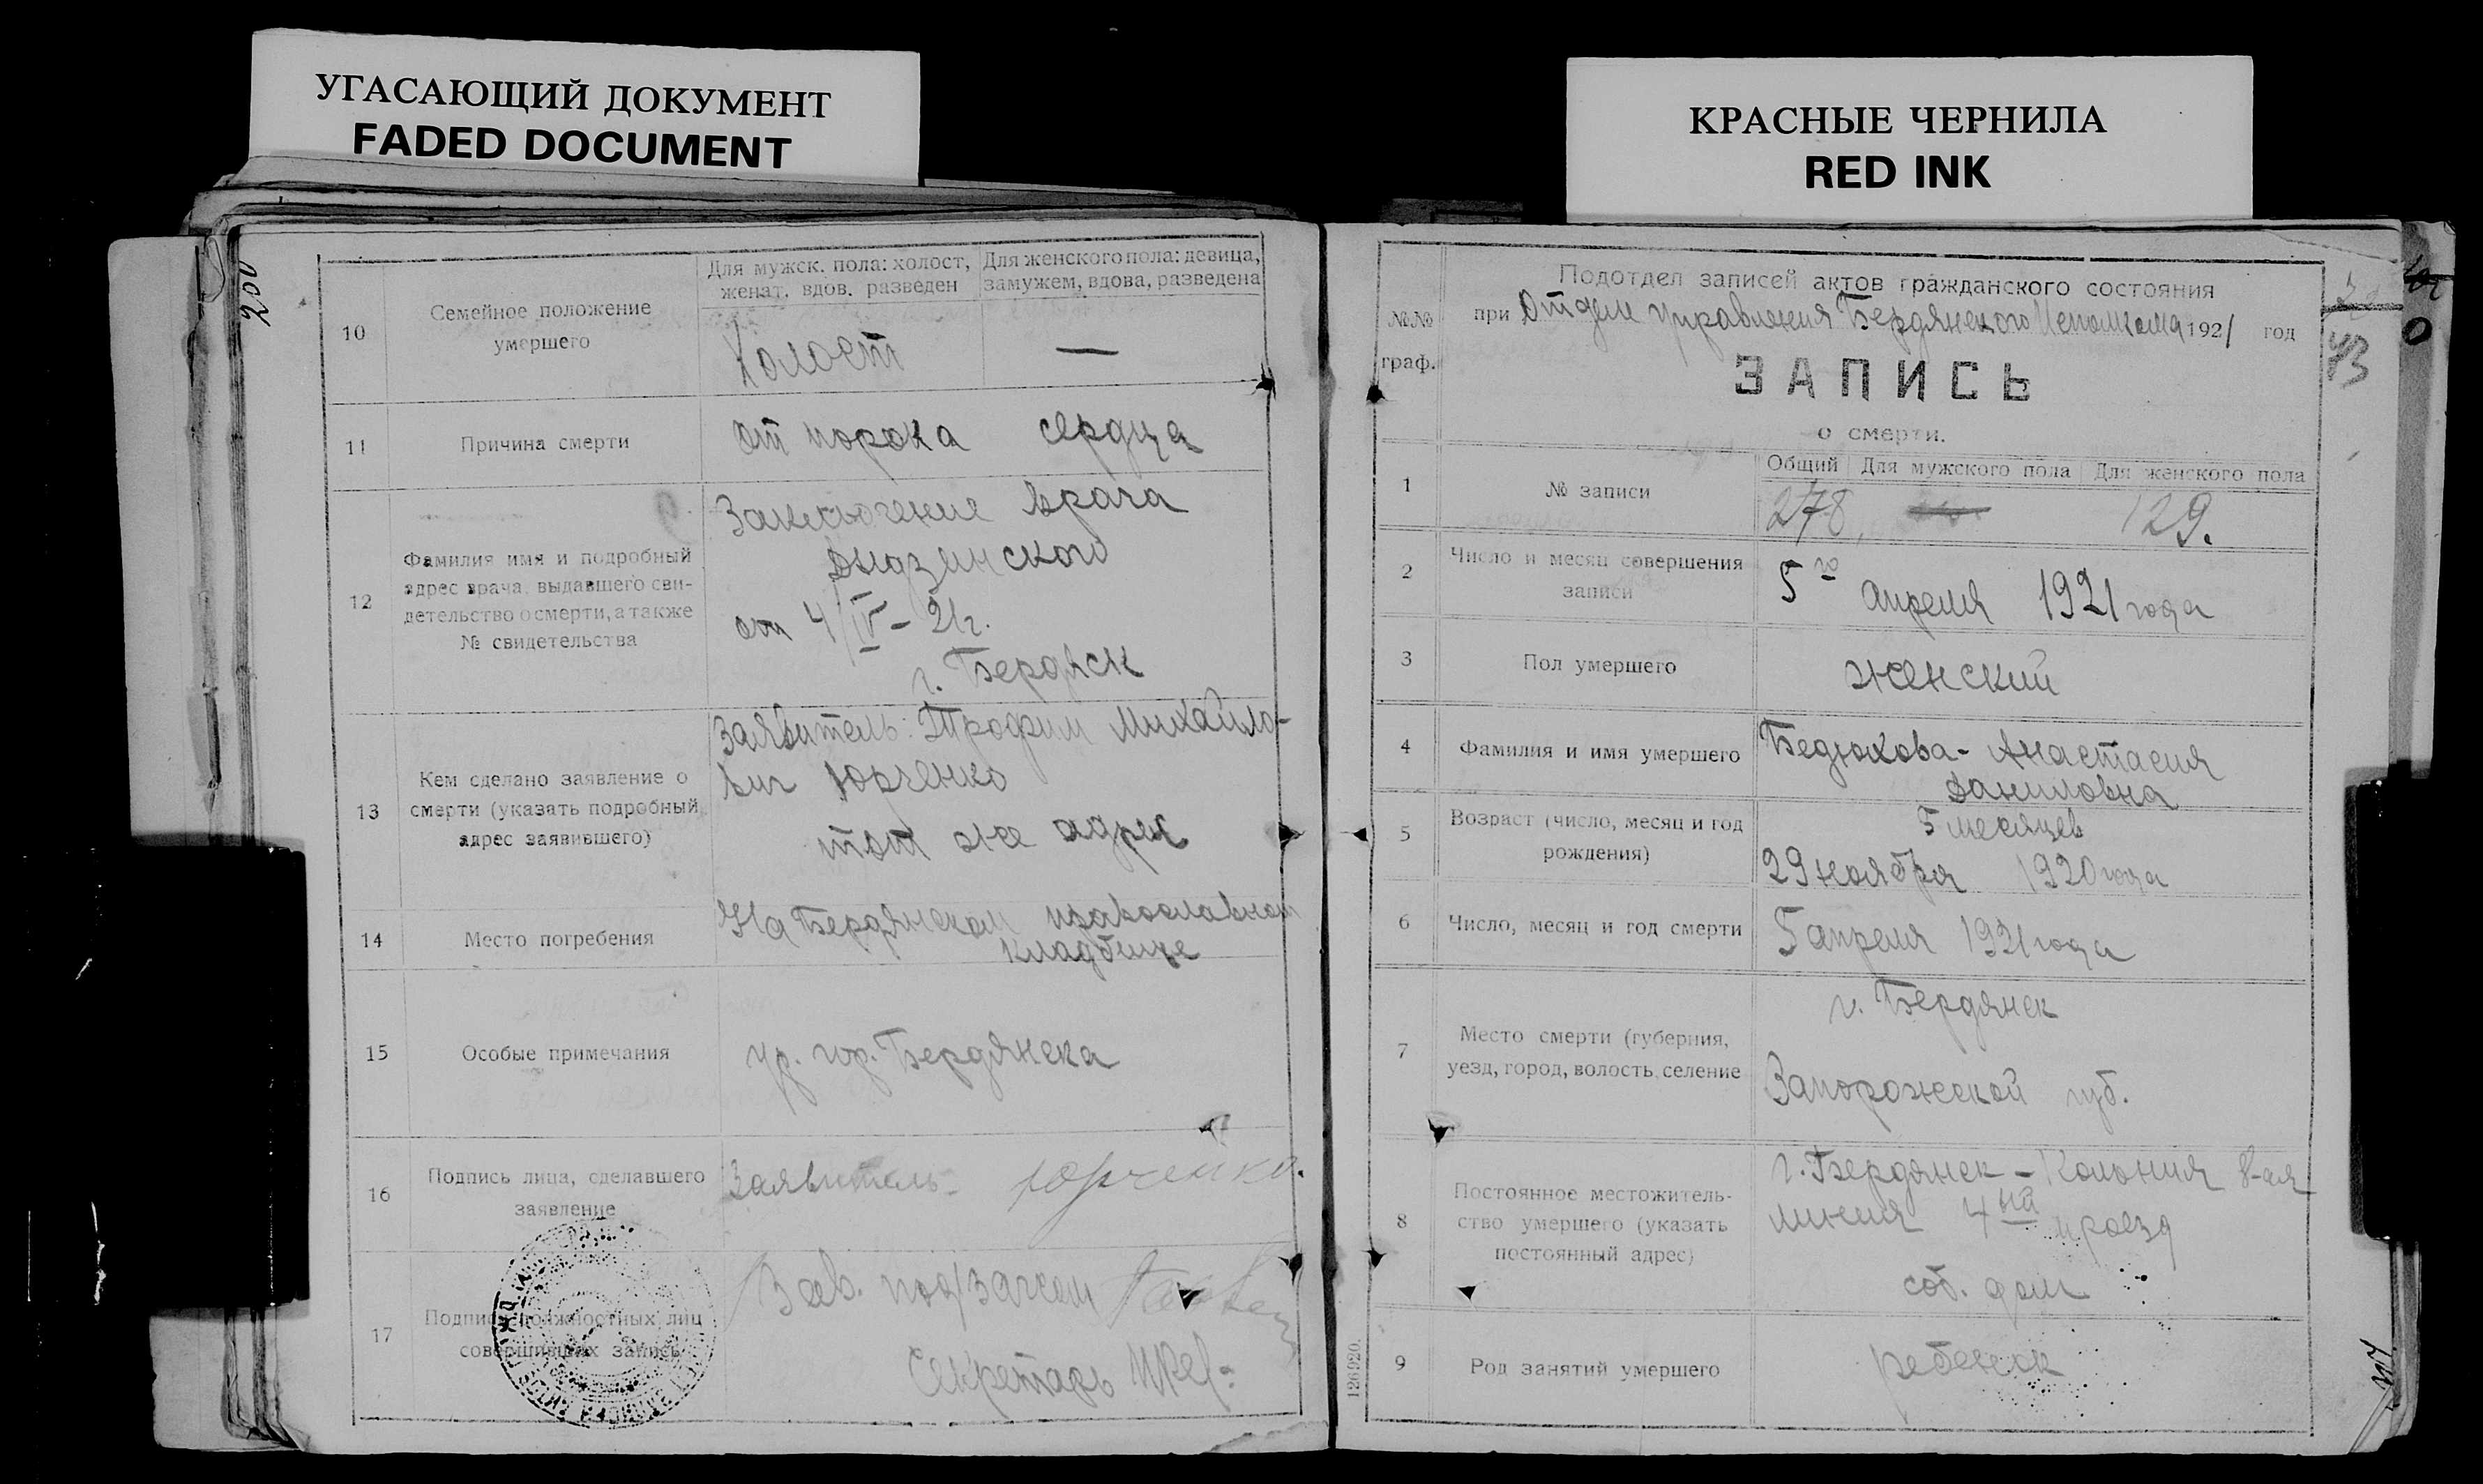 УГАСАЮЩИЙ ДОКУМЕНТ
FADED DOCUMENT
КРАСНЫЕ ЧЕРНИЛА
RED INK
200
10
Семейное положение
умершего
Для мужск. пола: холост,
женат, вдов. разведен
Для женского пола: девица,
замужем, вдова, разведена
Холост
—
11
Причина смерти
от порока сердца
12
Фамилия имя и подробный
адрес врача, выдавшего сви-
детельство о смерти, а также
№ свидетельства
Заключение врача
от 4/IV – 21 г.
г. Бердяск
13
Кем сделано заявление о
смерти (указать подробный
адрес заявившего)
Заявитель: Трофим Михайло-
вич Юрченко
тот же адрес
14
Место погребения
На Бердянском православном
кладбище
15
Особые примечания
гр. гор. Бердянска
16
Подпись лица, сделавшего
заявление
Заявитель – Юрченко.
17
Подписи должностных лиц
совершивших запись
Зав. под/загсом
Секретарь
№№
граф.
Подотдел записей актов гражданского состояния
при Отделе Управления Бердянского Исполкома 1921 год
ЗАПИСЬ
о смерти.
43
1
№ записи
Общий
Для мужского пола
Для женского пола
278
129.
2
Число и месяц совершения
записи
5го апреля 1921 года
3
Пол умершего
женский
4
Фамилия и имя умершего
Бедюхова – Анастасия
Даниловна
5
Возраст (число, месяц и год
рождения)
5 месяцев
29 ноября 1920 года
6
Число, месяц и год смерти
5 апреля 1921 года
7
Место смерти (губерния,
уезд, город, волость, селение
г. Бердянск
Запорожской губ.
8
Постоянное местожитель-
ство умершего (указать
постоянный адрес)
г. Бердянск – Колония 8-ая
линия 4ый проезд
соб. дом
9
Род занятий умершего
ребенок
126920.